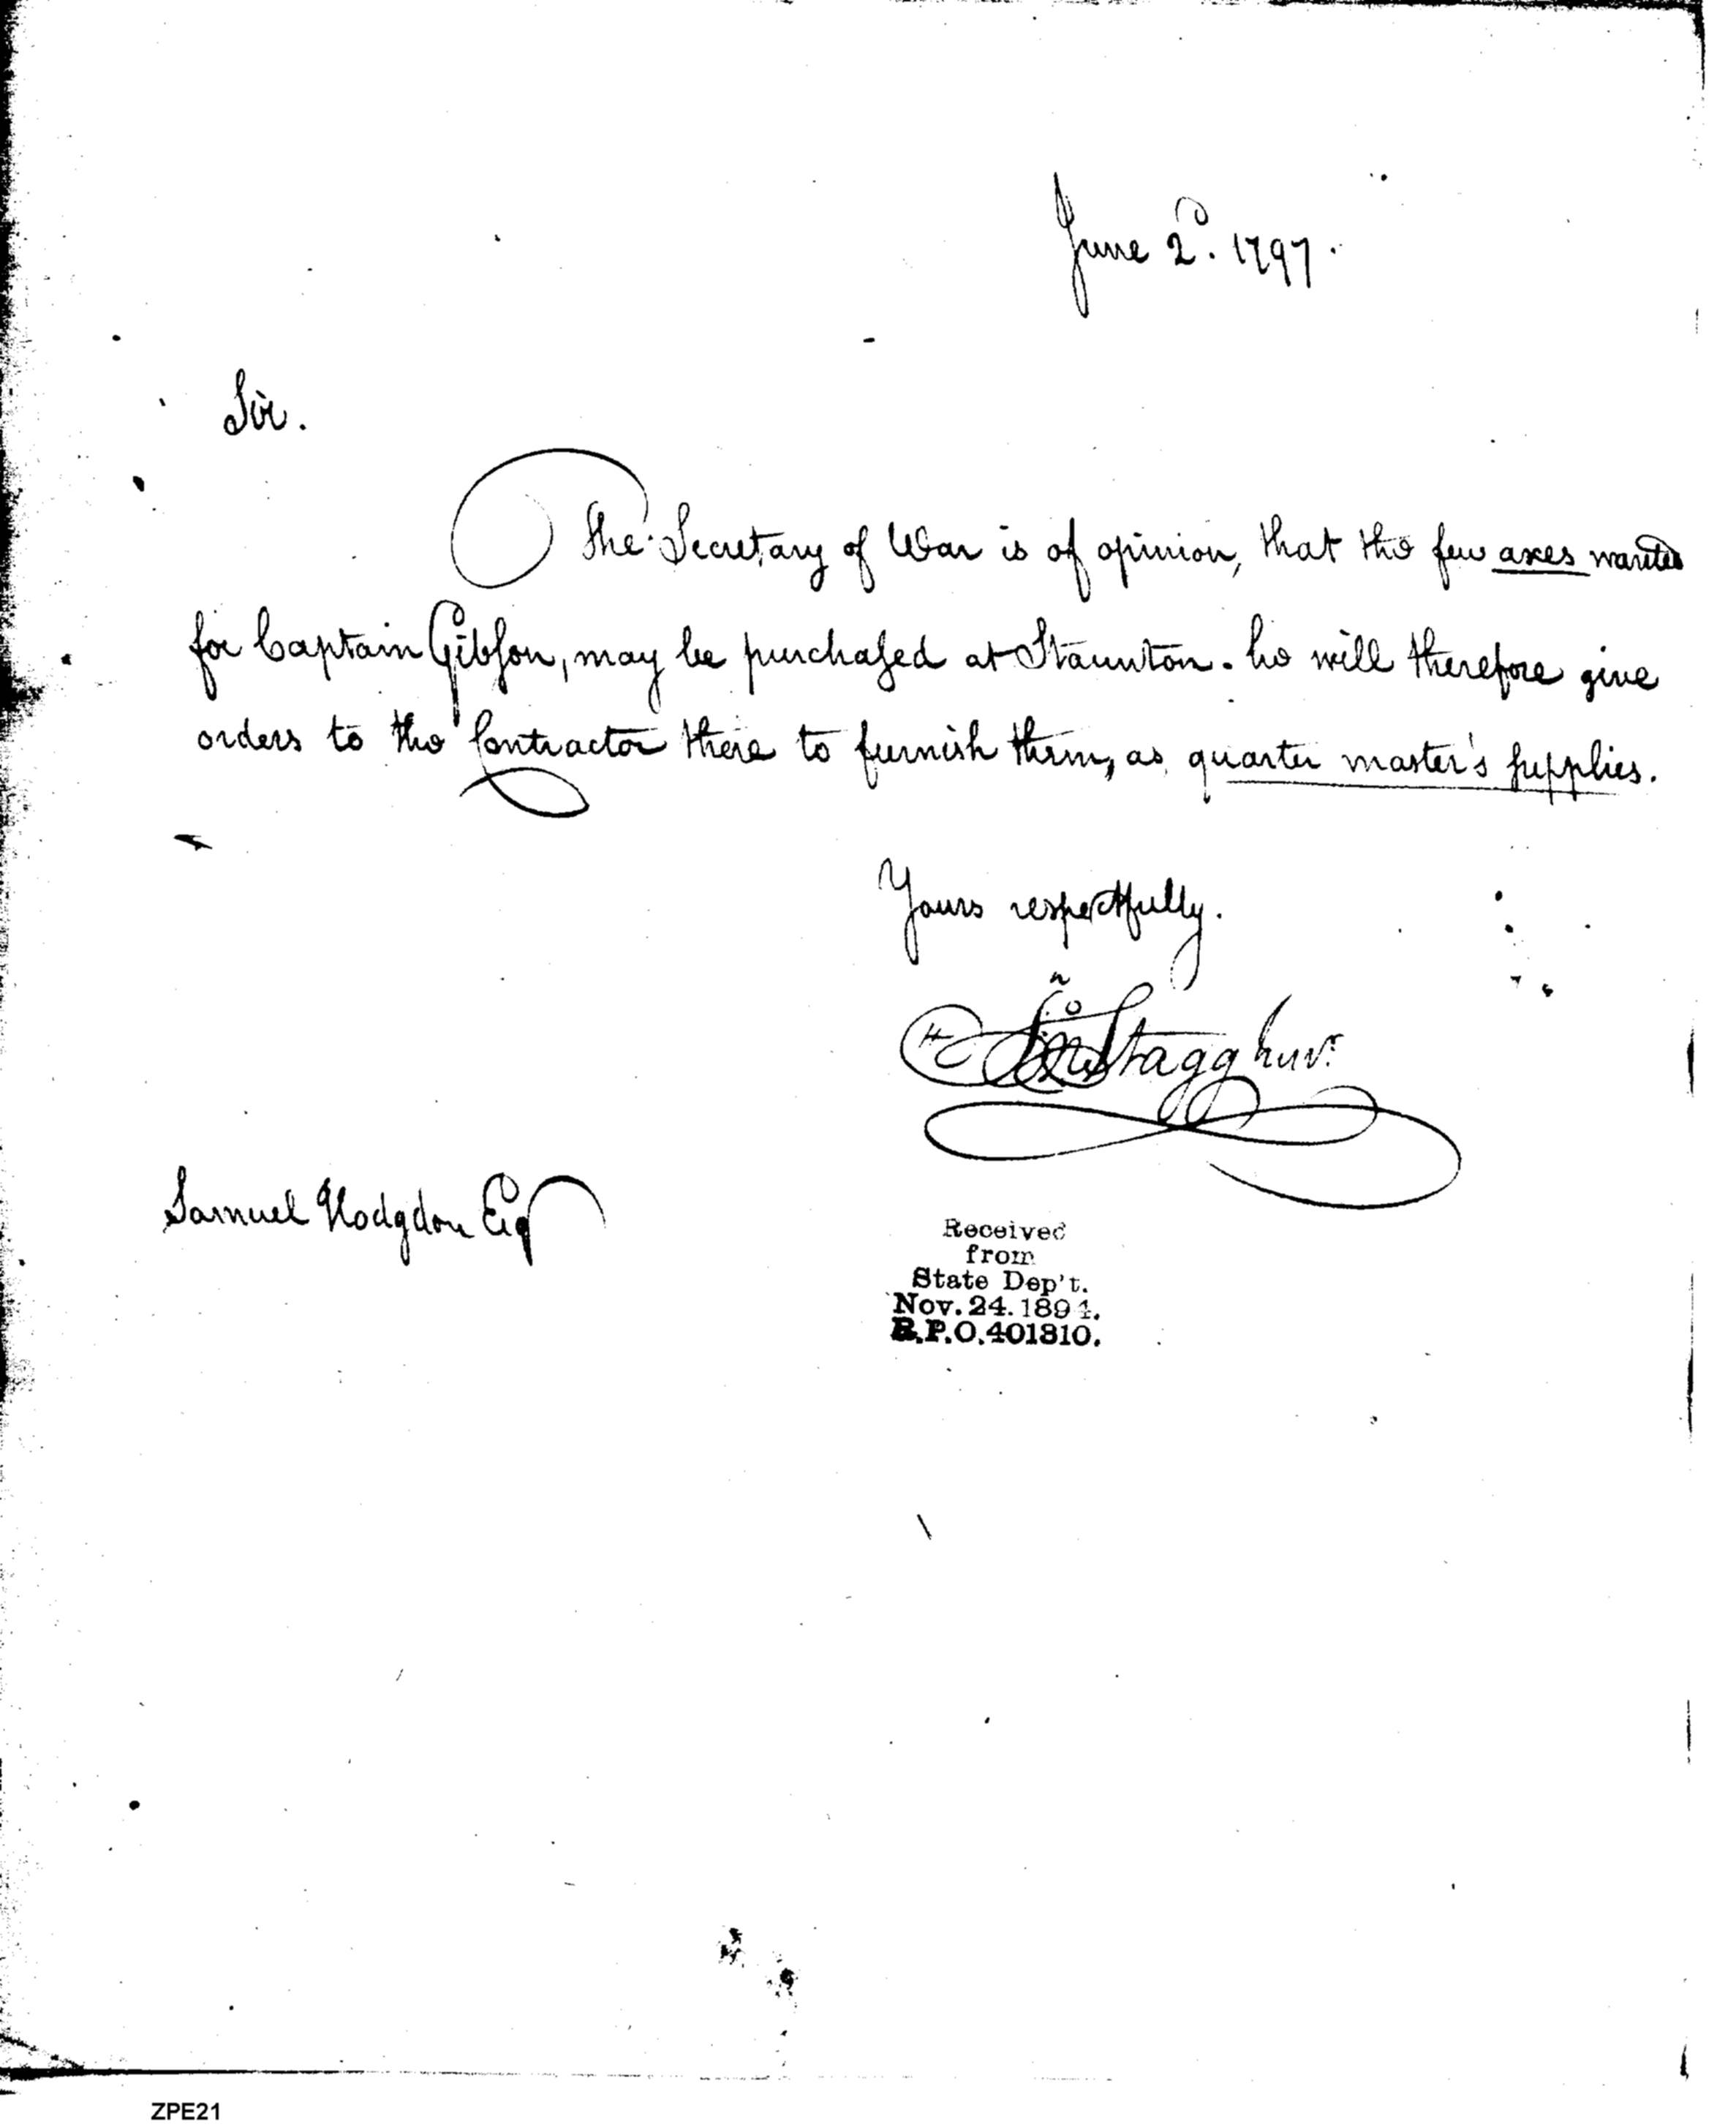 June 2d. 1797.
Sir.
The Secretary of War is of opinion, that the few axes wanted
for Captain Gibson, may be purchased at Staunton. he will therefore give
orders to the Contractor there to furnish them, as quarter master's supplies.
Yours respectfully.
Jno Stagg Junr.
Samuel Hodgdon Esq
Received
from
State Dep't.
Nov. 24. 1894.
R.P.O. 401810.
ZPE21